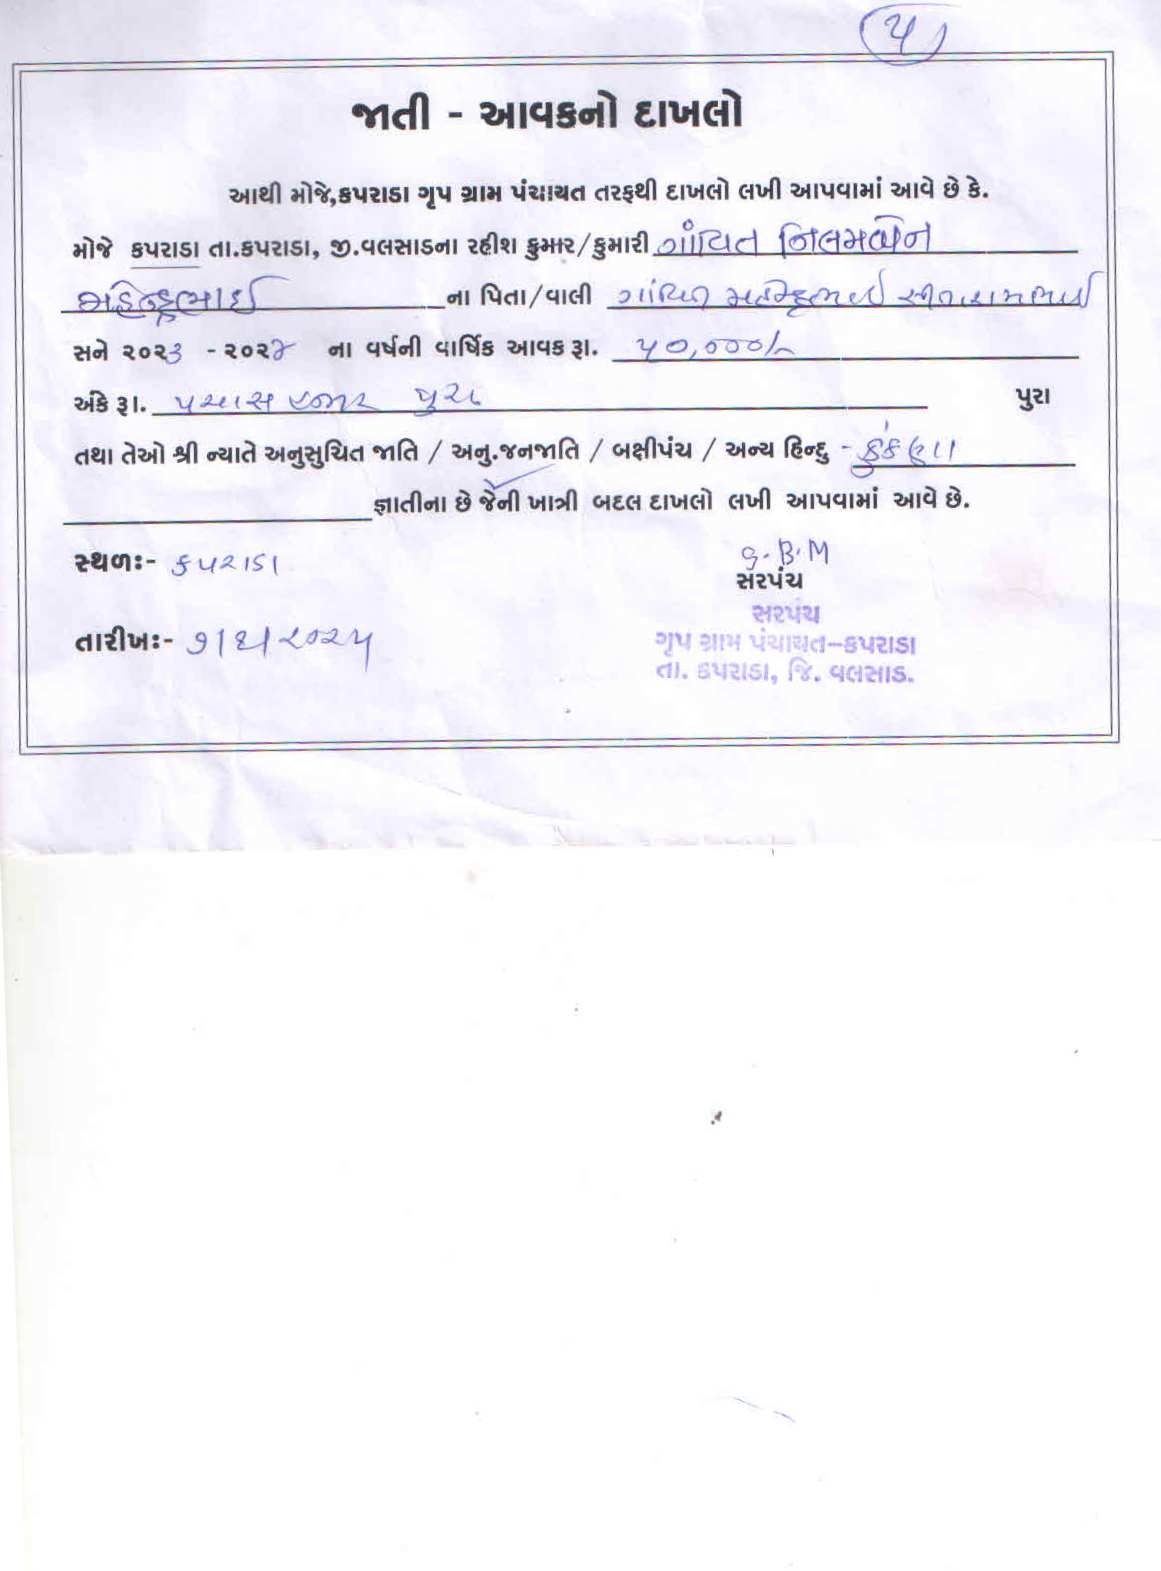 ૫
જાતી - આવકનો દાખલો
આથી મોજે,કપરાડા ગૃપ ગ્રામ પંચાયત તરફથી દાખલો લખી આપવામાં આવે છે કે.
મોજે કપરાડા તા.કપરાડા, જી.વલસાડના રહીશ કુમાર/કુમારી ગાંવિત નિલમબેન
મહેન્દ્રભાઈ ના પિતા/વાલી ગાંવિત મહેન્દ્રભાઈ સીતારામભાઈ
સને ૨૦૨૩ - ૨૦૨૪ ના વર્ષની વાર્ષિક આવક રૂા. ૫૦,૦૦૦/-
અંકે રૂા. પચાસ હજાર પુરા પુરા
તથા તેઓ શ્રી ન્યાતે અનુસુચિત જાતિ / અનુ.જનજાતિ / બક્ષીપંચ / અન્ય હિન્દુ - કુંકણા
જ્ઞાતીના છે જેની ખાત્રી બદલ દાખલો લખી આપવામાં આવે છે.
સ્થળઃ- કપરાડા
G.B.M
સરપંચ
તારીખઃ- ૭/૬/૨૦૨૫
સરપંચ
ગૃપ ગ્રામ પંચાયત-કપરાડા
તા. કપરાડા, જિ. વલસાડ.